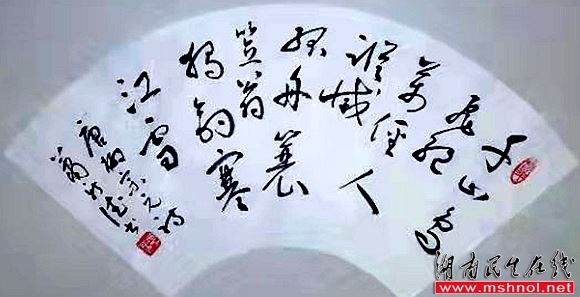 千山鸟
飞绝万
径人
踪灭
孤舟蓑
笠翁
独钓寒
江雪
唐柳宗元诗
湖南民生在线
www.mshnol.net